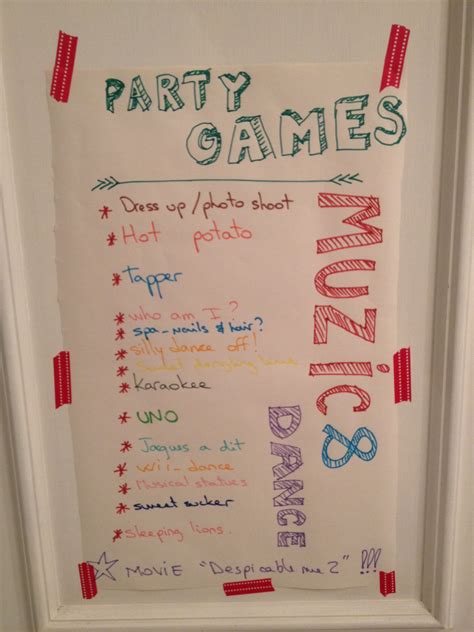 PARTY
GAMES
* Dress up / photo shoot
* Hot potato
* tapper
* who am I?
* spa-nails & hair?
* silly dance off!
* Sweet dangling
* Karaokee
* UNO
* Jaques a dit
* Wii-dance
* Musical statues
* sweet sucker
* sleeping lions.
MUZIC &
DANCE
☆ MOVIE "Despicable me 2" !!!